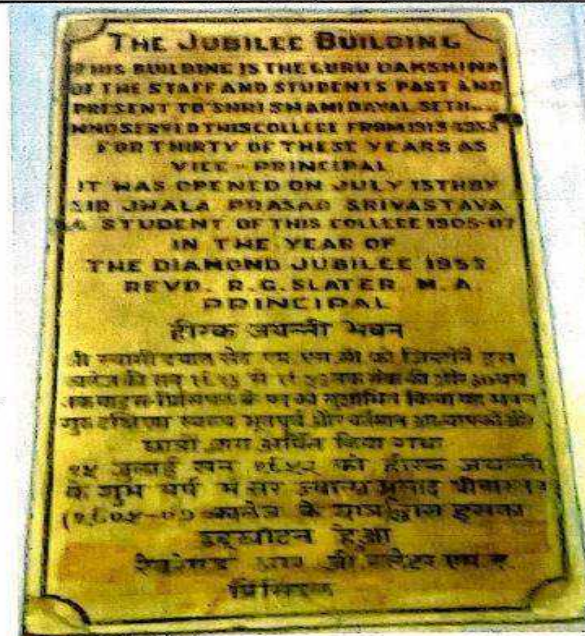 THE JUBILEE BUILDING
THIS BUILDING IS THE GURU DAKSHINA
OF THE STAFF AND STUDENTS PAST AND
PRESENT TO SHRI SWAMI DAYAL SETH
WHO SERVED THIS COLLEGE FROM 1913
FOR THIRTY OF THESE YEARS AS
VICE - PRINCIPAL
IT WAS OPENED ON JULY 15TH BY
SIR JWALA PRASAD SRIVASTAVA
A STUDENT OF THIS COLLEGE 1905-07
IN THE YEAR OF
THE DIAMOND JUBILEE
REVD. R. G. SLATER M. A
PRINCIPAL
हीरक जयन्ती भवन
श्री स्वामी दयाल सेठ एम. एस. सी को जिन्होंने इस
कालेज की सन् से तक सेवा की और ३० वर्ष
तक वाइस-प्रिंसिपल के पद को सुशोभित किया यह भवन
गुरु दक्षिणा स्वरूप भूतपूर्व और वर्तमान अध्यापकों और
छात्रों द्वारा अर्पित किया गया
१५ जुलाई सन को हीरक जयन्ती
के शुभ वर्ष में सर ज्वाला प्रसाद श्रीवास्तव
(१९०५-०७ कालेज के छात्र) द्वारा इसका
उद्घाटन हुआ
रेवरेण्ड आर जी स्लेटर एम. ए.
प्रिंसिपल